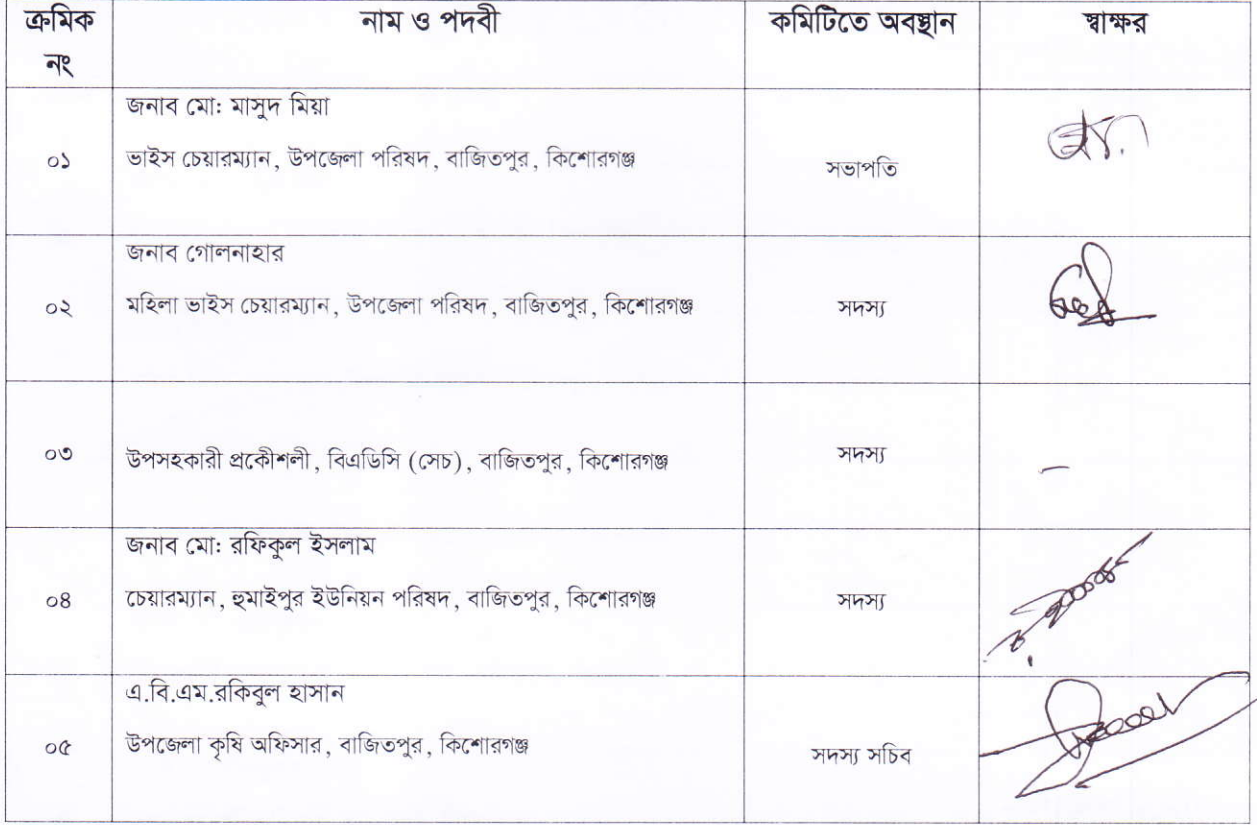 ক্রমিক নং নাম ও পদবী কমিটিতে অবস্থান স্বাক্ষর
জনাব মো: মাসুদ মিয়া
০১ ভাইস চেয়ারম্যান, উপজেলা পরিষদ, বাজিতপুর, কিশোরগঞ্জ সভাপতি
জনাব গোলনাহার
০২ মহিলা ভাইস চেয়ারম্যান, উপজেলা পরিষদ, বাজিতপুর, কিশোরগঞ্জ সদস্য
০৩ উপসহকারী প্রকৌশলী, বিএডিসি (সেচ), বাজিতপুর, কিশোরগঞ্জ সদস্য –
জনাব মো: রফিকুল ইসলাম
০৪ চেয়ারম্যান, হুমাইপুর ইউনিয়ন পরিষদ, বাজিতপুর, কিশোরগঞ্জ সদস্য
এ.বি.এম.রকিবুল হাসান
০৫ উপজেলা কৃষি অফিসার, বাজিতপুর, কিশোরগঞ্জ সদস্য সচিব